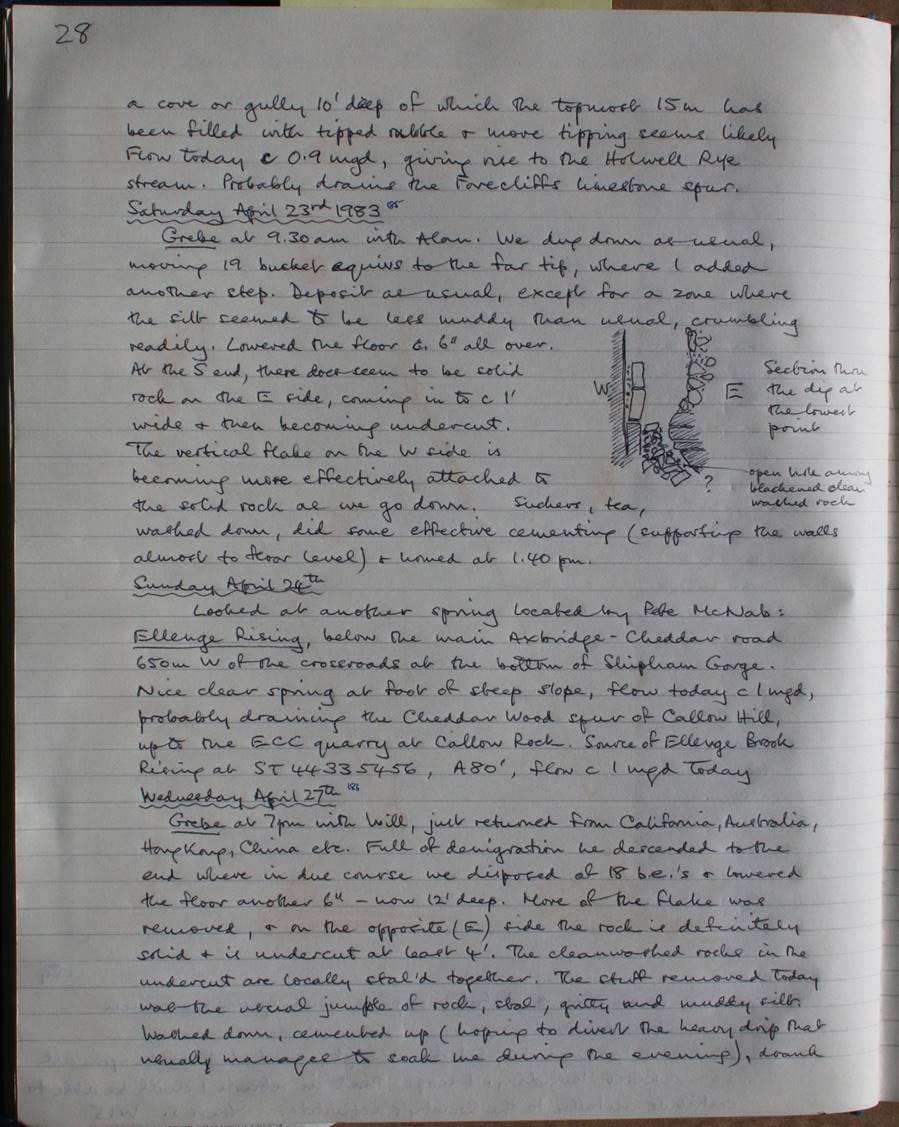 28
a cove or gully 10' deep of which the topmost 15m has
been filled with tipped rubble & more tipping seems likely
Flow today c 0.9 mgd, giving rise to the Holwell Rye
stream. Probably drains the Forecliffs limestone spur.
Saturday April 23rd 1983 185
Grebe at 9.30am with Alan. We dug down as usual,
moving 19 bucket equivs to the far tip, where I added
another step. Deposit as usual, except for a zone where
the silt seemed to be less muddy than usual, crumbling
readily. Lowered the floor c. 6" all over.
At the S end, there does seem to be solid
rock on the E side, coming in to c 1'
wide & then becoming undercut.
The vertical flake on the W side is
becoming more effectively attached to
the solid rock as we go down. Suchers, tea,
washed down, did some effective cementing (supporting the walls
almost to floor level) & homed at 1.40 pm.
W
E
Section thru
the dig at
the lowest
point
?
open hole among
blackened clean
washed rock
Sunday April 24th
Looked at another spring located by Pete McNab:
Ellenge Rising, below the main Axbridge-Cheddar road
650m W of the crossroads at the bottom of Shipham Gorge.
Nice clear spring at foot of steep slope, flow today c 1 mgd,
probably draining the Cheddar Wood spur of Callow Hill,
up to the ECC quarry at Callow Rock. Source of Ellenge Brook
Rising at ST 44335456, A80', flow c 1 mgd today
Wednesday April 27th 186
Grebe at 7pm with Will, just returned from California, Australia,
Hong Kong, China etc. Full of denigration he descended to the
end where in due course we disposed of 18 b.e.'s & lowered
the floor another 6" – now 12' deep. More of the flake was
removed, & on the opposite (E) side the rock is definitely
solid & is undercut at least 4'. The cleanwashed rocks in the
undercut are locally stal'd together. The stuff removed today
was the usual jumble of rock, stal, gritty and muddy silt.
Washed down, cemented up (hoping to divert the heavy drip that
usually manages to soak me during the evening), drank